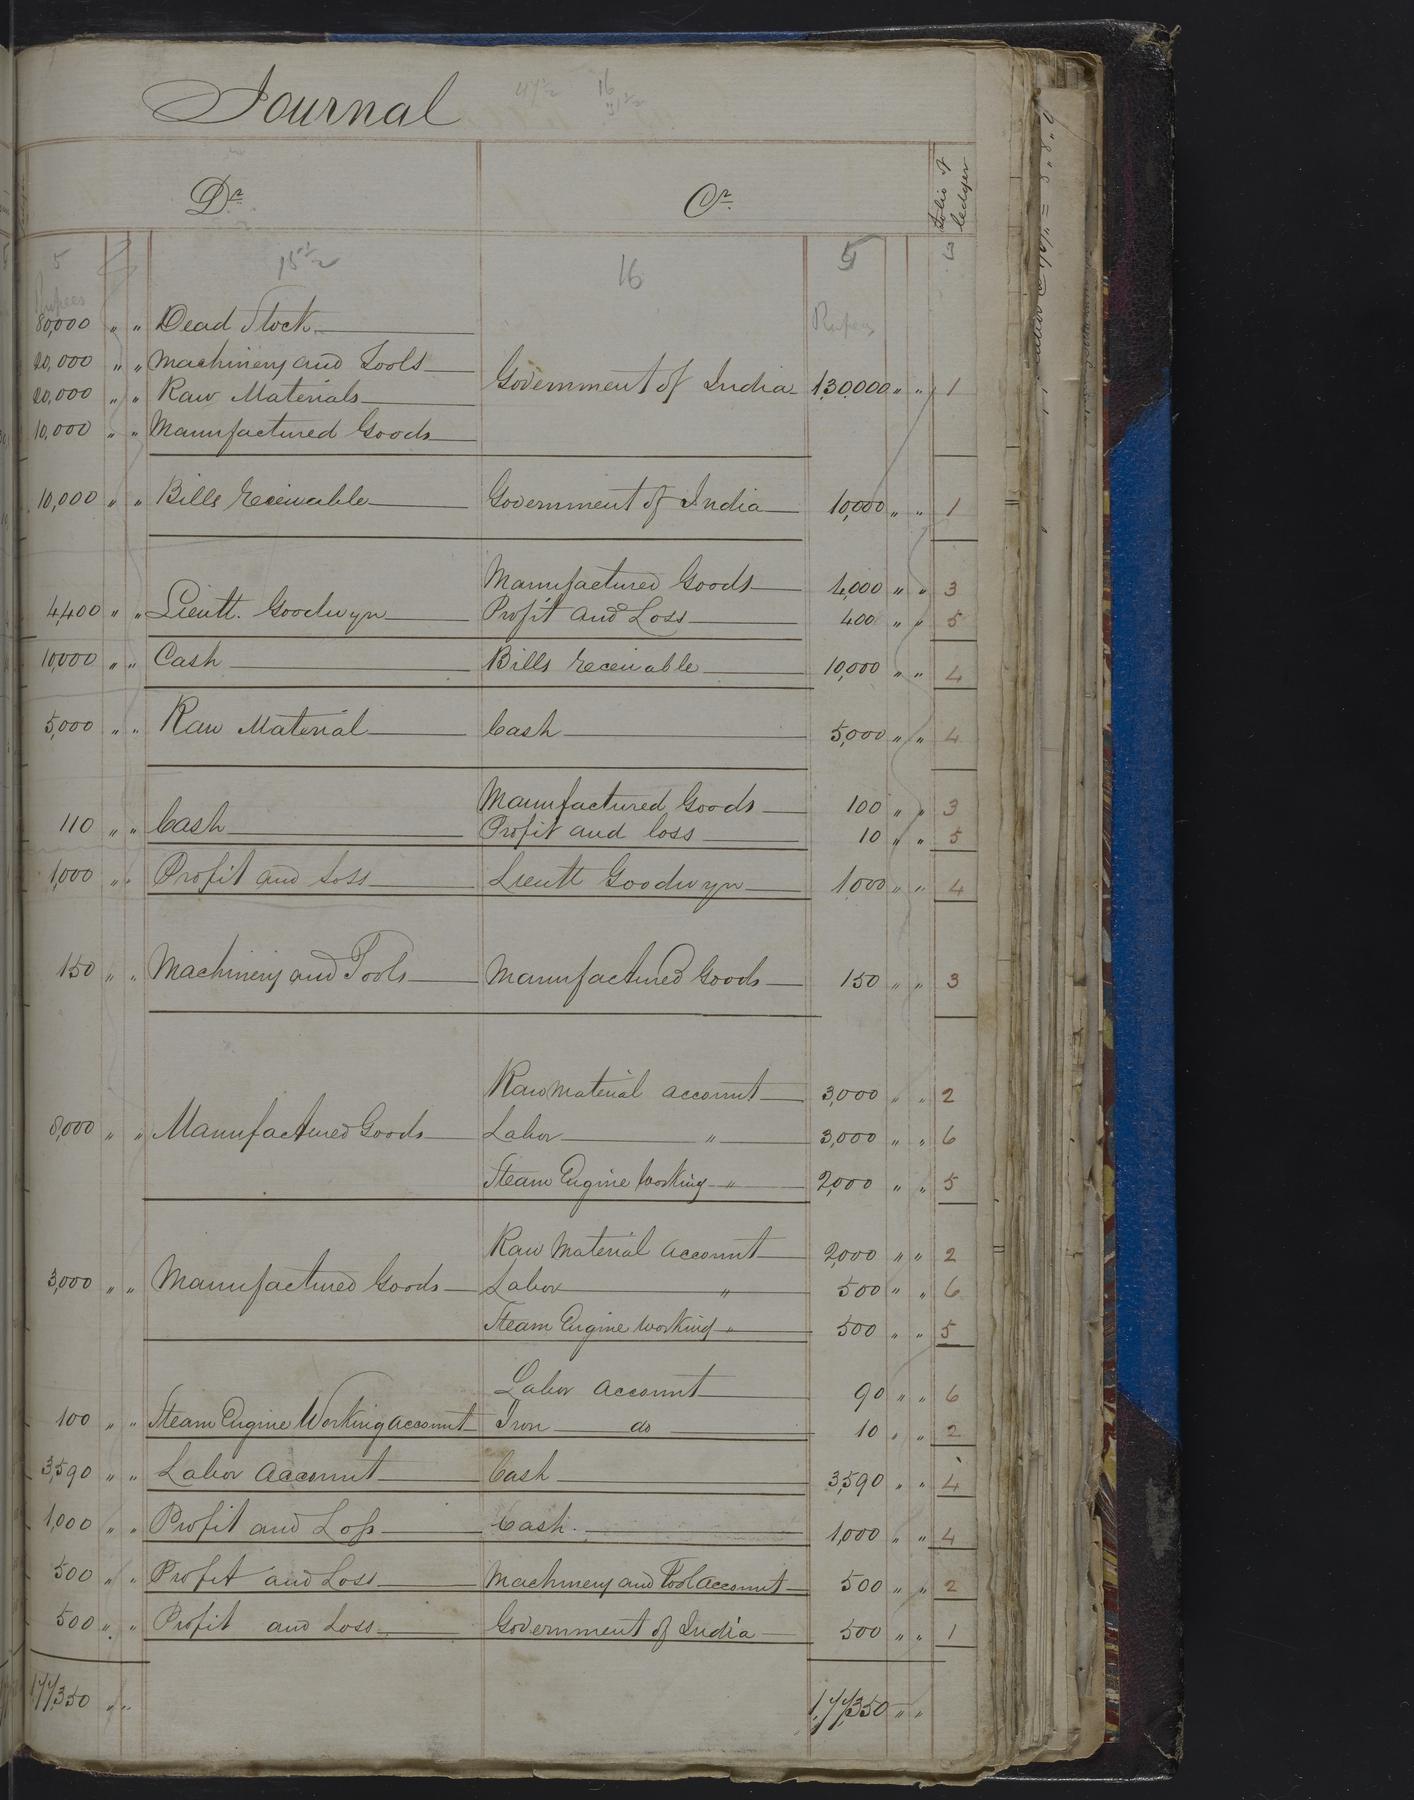 Journal
47½ 16
Dr Cr folio of ledger
5 15½ 16 5 3
Rupees
80,000 " " Dead Stock Rupees
20,000 " " Machinery and Tools
Government of India 1,30,000 " " 1
20,000 " " Raw Materials
10,000 " " Manufactured Goods
10,000 " " Bills receivable Government of India 10,000 " " 1
Manufactured Goods 4,000 " " 3
4,400 " " Lieutt. Goodwyn Profit and Loss 400 " " 5
10,000 " " Cash Bills receivable 10,000 " " 4
5,000 " " Raw Material Cash 5,000 " " 4
Manufactured Goods 100 " " 3
110 " " Cash Profit and loss 10 " " 5
1,000 " " Profit and Loss Lieutt Goodwyn 1,000 " " 4
150 " " Machinery and Tools Manufactured Goods 150 " " 3
Raw material account 3,000 " " 2
8,000 " " Manufactured Goods Labor " 3,000 " " 6
Steam Engine Working " 2,000 " " 5
Raw Material Account 2,000 " " 2
3,000 " " Manufactured Goods Labor " 500 " " 6
Steam Engine working " 500 " " 5
Labor Account 90 " " 6
100 " " Steam Engine Working account Iron do 10 " " 2
3,590 " " Labor Account Cash 3,590 " " 4
1,000 " " Profit and Loss Cash. 1,000 " " 4
500 " " Profit and Loss Machinery and Tool Account 500 " " 2
500 " " Profit and Loss Government of India 500 " " 1
1,77,350 " " 1,77,350 " "